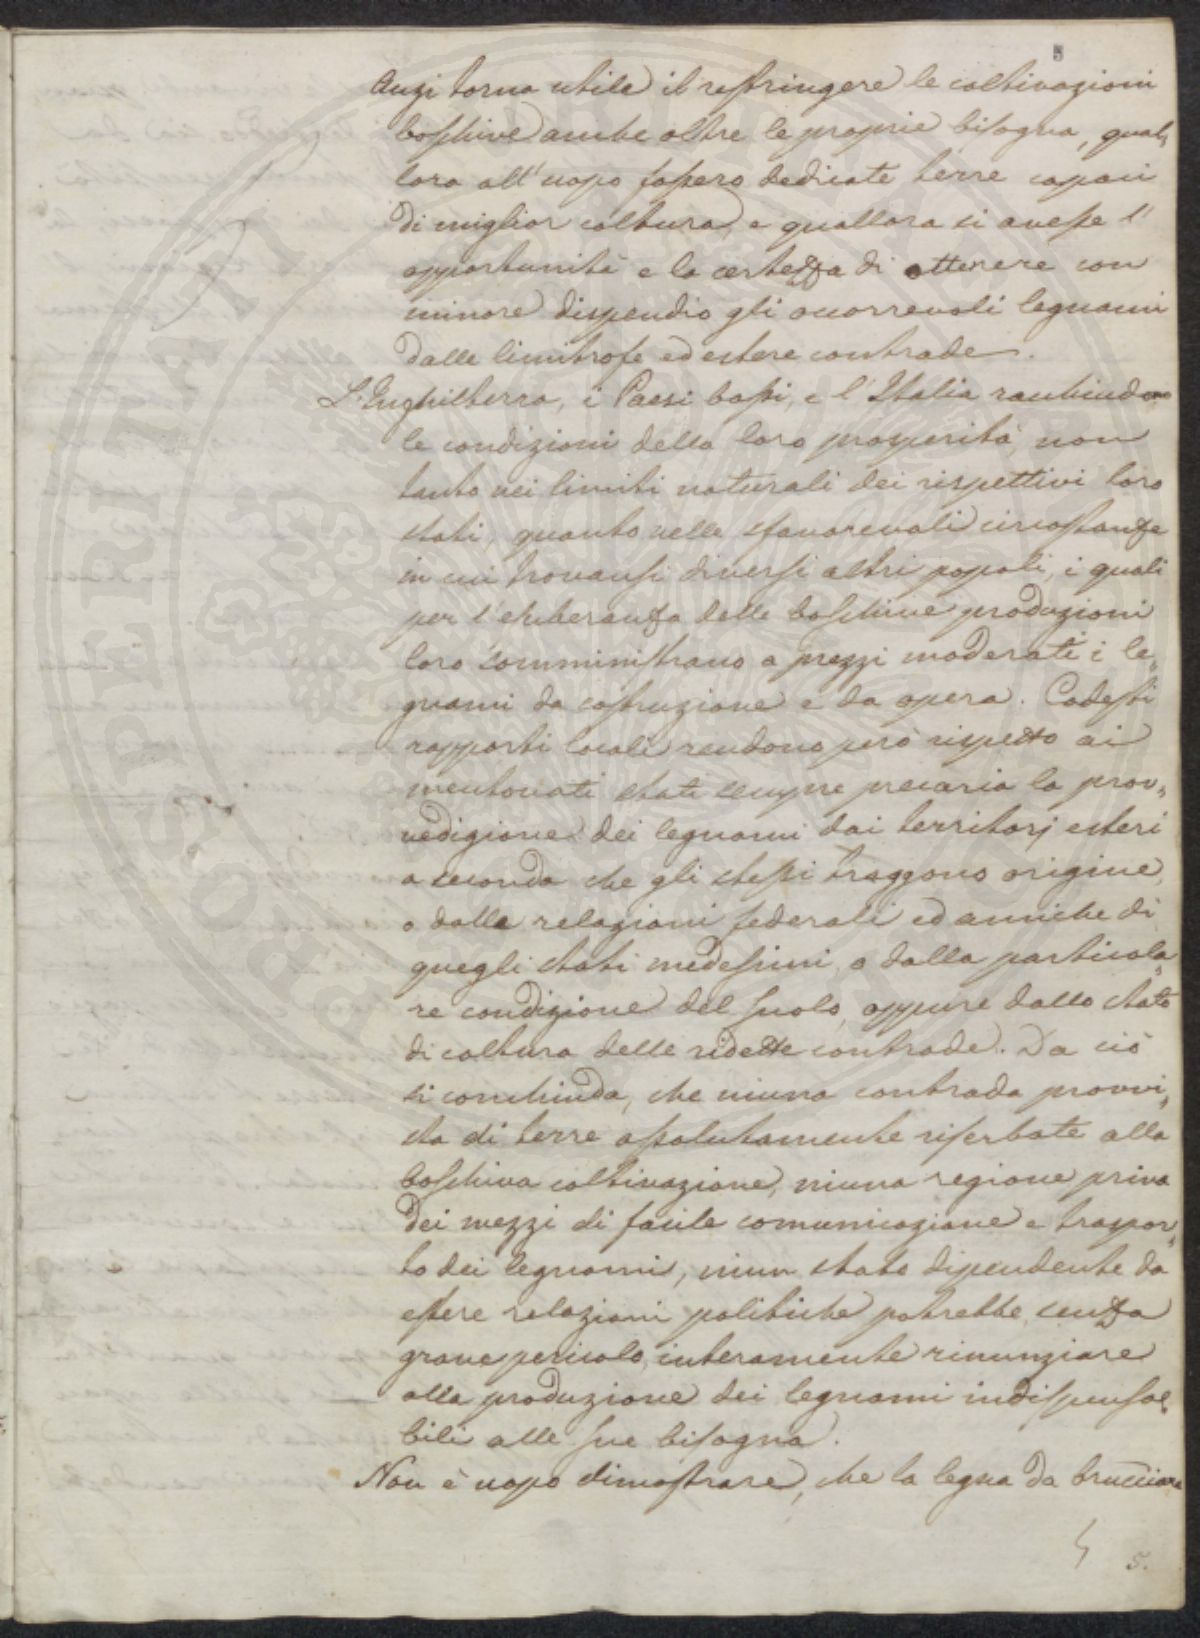 5
Anzi torna utile il restringere le coltivazioni
boschive anche oltre le proprie bisogna, qual„
lora all'uopo fossero dedicate terre capaci
di miglior coltura, e quallora si avesse l'
opportunità e la certezza di ottenere con
minore dispendio gli occorrevoli legnami
dalle limitrofe ed estere contrade.
L'Inghilterra, i Paesi bassi, e l'Italia racchiudono
le condizioni della loro prosperità, non
tanto nei limiti naturali dei rispettivi loro
stati, quanto nelle sfavorevoli circostanze
in cui trovansi diversi altri popoli, i quali
per l'esuberanza delle boschive produzioni
loro somministrano a prezzi moderati i le„
gnami da costruzione e da opera. Codesti
rapporti locali rendono però rispetto ai
mentovati stati sempre precaria la prov„
vedigione dei legnami dai territorj esteri
a seconda che gli stessi traggono origine,
o dalle relazioni federali ed amiche di
quegli stati medesimi, o dalla particola„
re condizione del suolo, oppure dallo stato
di coltura delle ridette contrade. Da ciò
si conchiuda, che niuna contrada provvi„
sta di terre assolutamente riserbate alla
boschiva coltivazione, niuna regione priva
dei mezzi di facile comunicazione e traspor„
to dei legnami, niun stato dipendente da
estere relazioni politiche potrebbe, senza
grave pericolo, interamente rinunziare
alla produzione dei legnami indispensa„
bili alle sue bisogna.
Non è uopo dimostrare, che la legna da brucciare
5.
PROSPERITATI